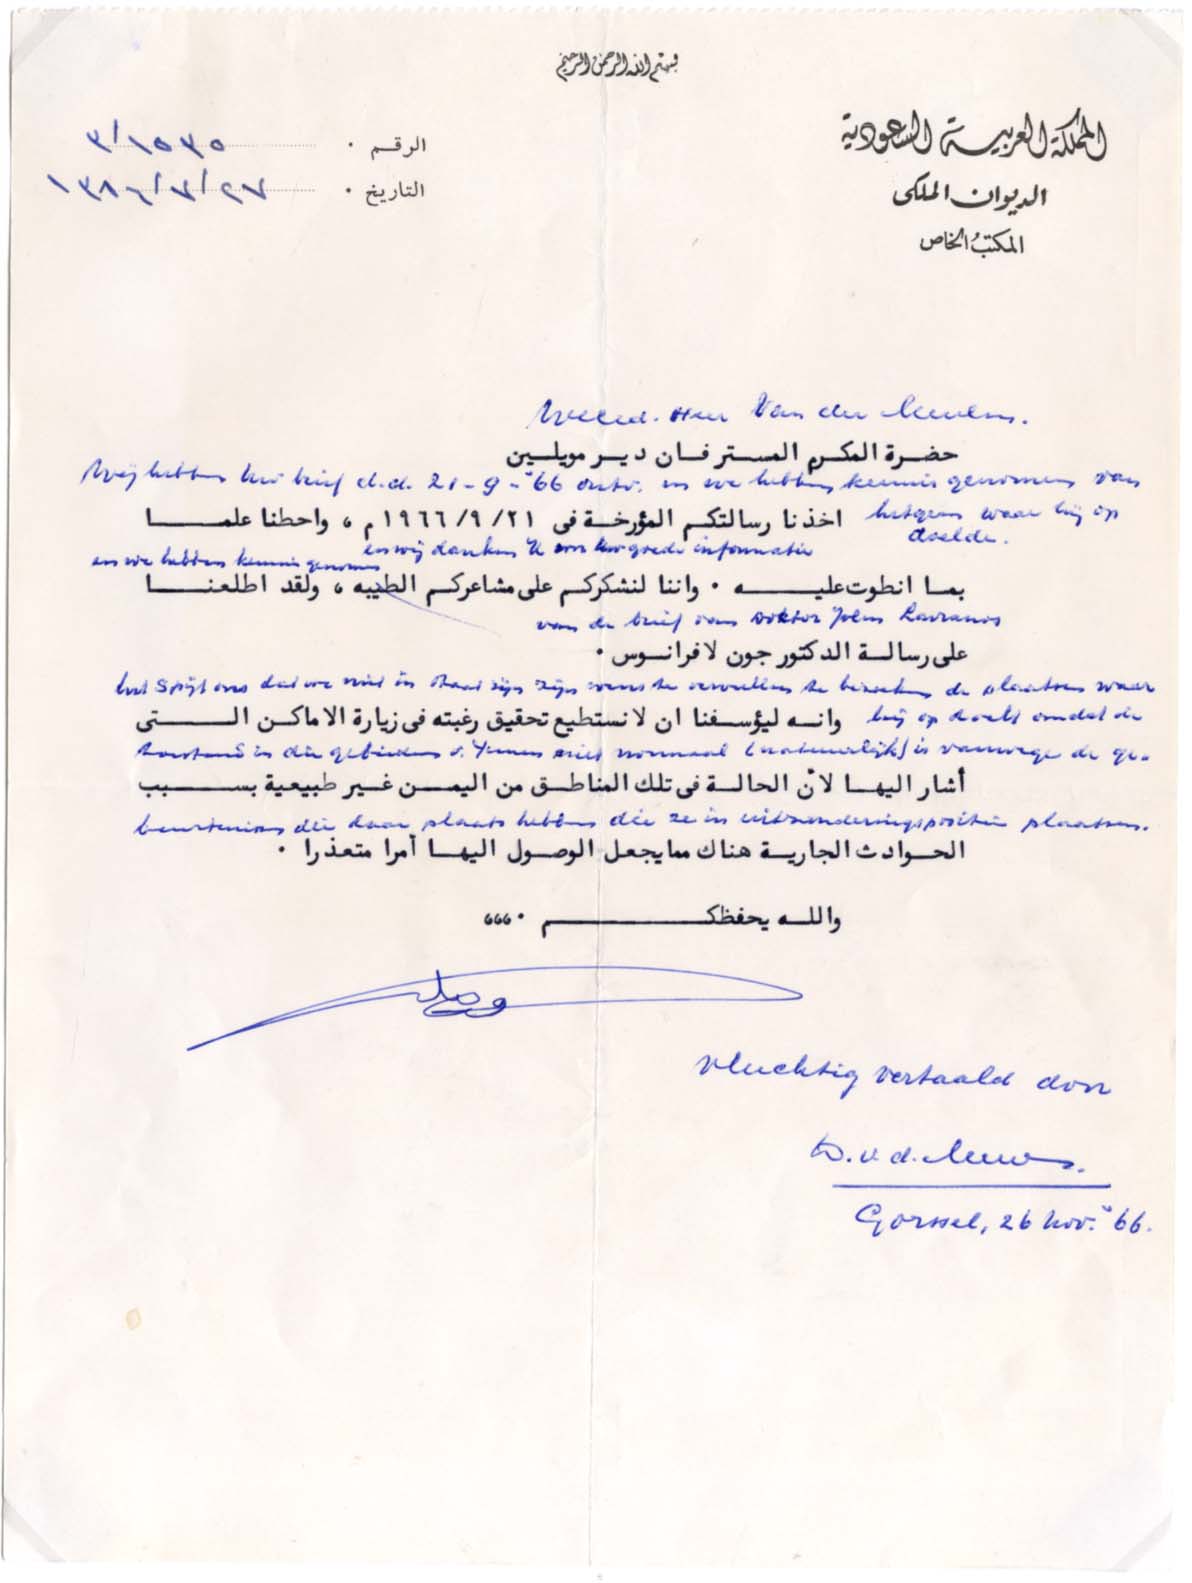 بسم الله الرحمن الرحيم
المملكة العربية السعودية
الديوان الملكى
المكتب الخاص
الرقم ٣/١٥٣٥
التاريخ ١٣٨٦/٧/٢٧
Weled. Heer Van der Meulen.
حضرة المكرم المستر فان دير مويلين
Wij hebben Uw brief d.d. 21-9-'66 ontv. en we hebben kennis genomen van
hetgeen waar hij op
doelde.
اخذنا رسالتكم المؤرخة فى ١٩٦٦/٩/٢١ م ، واحطنا علما
en wij danken U voor Uw goede informatie
en we hebben kennis genomen
بما انطوت عليه ٠ واننا لنشكركم على مشاعركم الطيبه ، ولقد اطلعنا
van de brief van Doktor John Lavranos
على رسالة الدكتور جون لافرانوس ٠
het spijt ons dat we niet in staat zijn zijn wens te vervullen te bezoeken de plaatsen waar
hij op doelt omdat de
وانه ليؤسفنا ان لا نستطيع تحقيق رغبته فى زيارة الاماكن التى
toestand in die gebieden v. Yemen niet normaal (natuurlijk) is vanwege de ge-
أشار اليها لأن الحالة فى تلك المناطق من اليمن غير طبيعية بسبب
beurtenissen die daar plaats hebben die ze in uitzonderingspositie plaatsen.
الحوادث الجارية هناك مما يجعل الوصول اليها أمرا متعذرا ٠
والله يحفظكم ٠،،،
vluchtig vertaald door
D. v. d. Meulen.
Gorssel, 26 Nov. '66.